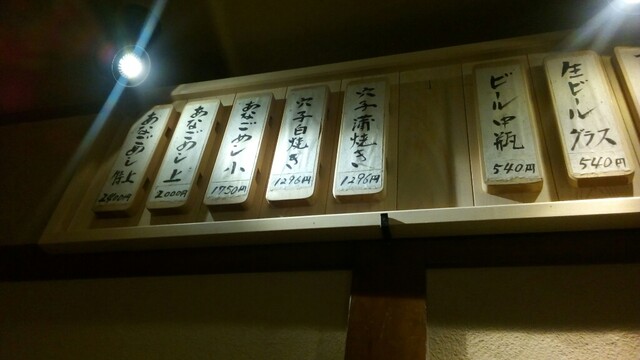 生ビール
グラス
540円
ビール中瓶
540円
穴子蒲焼き
1296円
穴子白焼き
1296円
あなごめし小
1750円
あなごめし上
2000円
あなごめし特上